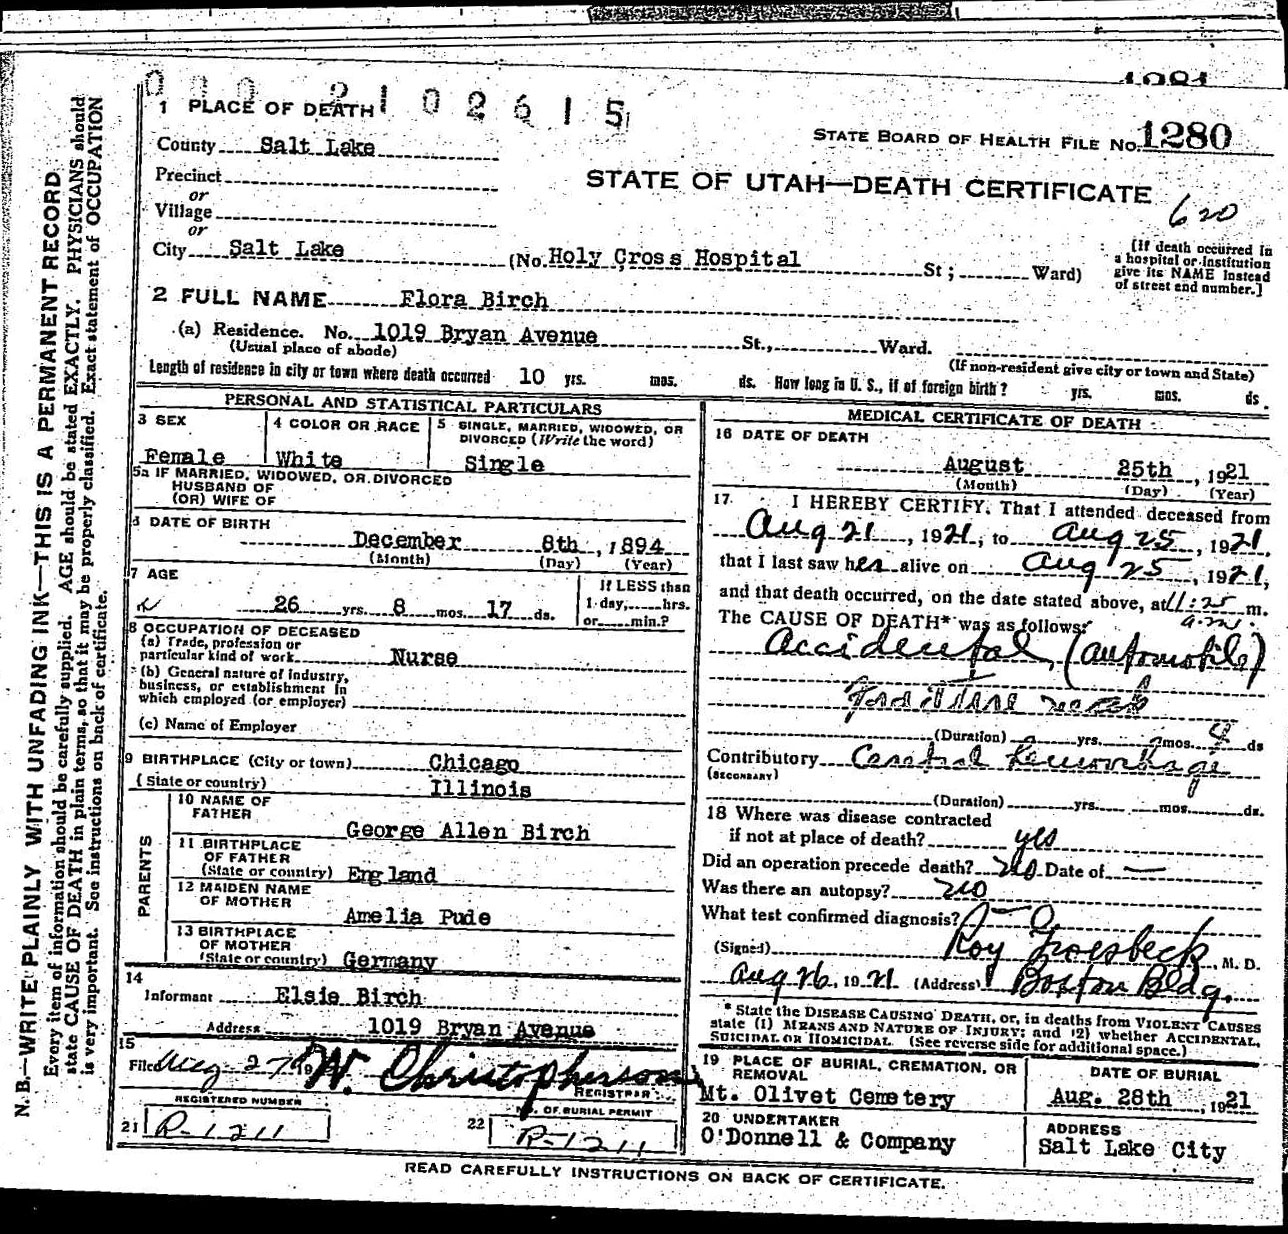 1281
0002102615
1 PLACE OF DEATH
STATE BOARD OF HEALTH FILE No. 1280
County Salt Lake
STATE OF UTAH—DEATH CERTIFICATE
Precinct
or
Village
or
620
City Salt Lake (No. Holy Cross Hospital St; Ward)
[If death occurred in
a hospital or institution
give its NAME instead
of street and number.]
2 FULL NAME Flora Birch
(a) Residence. No. 1019 Bryan Avenue St., Ward.
(Usual place of abode)
(If non-resident give city or town and State)
Length of residence in city or town where death occurred 10 yrs. mos. ds. How long in U. S., if of foreign birth? yrs. mos. ds.
PERSONAL AND STATISTICAL PARTICULARS
3 SEX
Female
4 COLOR OR RACE
White
5 SINGLE, MARRIED, WIDOWED, OR
DIVORCED (Write the word)
Single
5a IF MARRIED, WIDOWED, OR DIVORCED
HUSBAND OF
(OR) WIFE OF
6 DATE OF BIRTH
December 8th, 1894
(Month) (Day) (Year)
7 AGE
26 yrs. 8 mos. 17 ds.
If LESS than
1 day, hrs.
or min.?
8 OCCUPATION OF DECEASED
(a) Trade, profession or
particular kind of work Nurse
(b) General nature of industry,
business, or establishment in
which employed (or employer)
(c) Name of Employer
9 BIRTHPLACE (City or town) Chicago
(State or country) Illinois
PARENTS
10 NAME OF
FATHER
George Allen Birch
11 BIRTHPLACE
OF FATHER
(State or country) England
12 MAIDEN NAME
OF MOTHER
Amelia Pude
13 BIRTHPLACE
OF MOTHER
(State or country) Germany
14
Informant Elsie Birch
Address 1019 Bryan Avenue
15
Filed Aug 27 19 W. Christopherson
REGISTRAR
REGISTERED NUMBER
21 R-1211
NO. OF BURIAL PERMIT
22 R-1211
MEDICAL CERTIFICATE OF DEATH
16 DATE OF DEATH
August 25th, 1921
(Month) (Day) (Year)
17 I HEREBY CERTIFY, That I attended deceased from
Aug 21, 1921, to Aug 25, 1921
that I last saw her alive on Aug 25, 1921,
and that death occurred, on the date stated above, at 11:25 m.
a.m.
The CAUSE OF DEATH* was as follows:
Accidental, (automobile)
(Duration) yrs. mos. 4 ds
Contributory hemorrhage
(SECONDARY)
(Duration) yrs. mos. ds.
18 Where was disease contracted
if not at place of death? yes
Did an operation precede death? no Date of —
Was there an autopsy? no
What test confirmed diagnosis?
(Signed) Roy Groesbeck, M. D.
Aug 26, 1921 (Address) Boston Bldg.
* State the DISEASE CAUSING DEATH, or, in deaths from VIOLENT CAUSES
state (1) MEANS AND NATURE OF INJURY; and (2) whether ACCIDENTAL,
SUICIDAL OR HOMICIDAL. (See reverse side for additional space.)
19 PLACE OF BURIAL, CREMATION, OR
REMOVAL
Mt. Olivet Cemetery
DATE OF BURIAL
Aug. 28th, 1921
20 UNDERTAKER
O'Donnell & Company
ADDRESS
Salt Lake City
READ CAREFULLY INSTRUCTIONS ON BACK OF CERTIFICATE.
N. B.—WRITE PLAINLY WITH UNFADING INK—THIS IS A PERMANENT RECORD
Every item of information should be carefully supplied. AGE should be stated EXACTLY. PHYSICIANS should
state CAUSE OF DEATH in plain terms, so that it may be properly classified. Exact statement of OCCUPATION
is very important. See instructions on back of certificate.